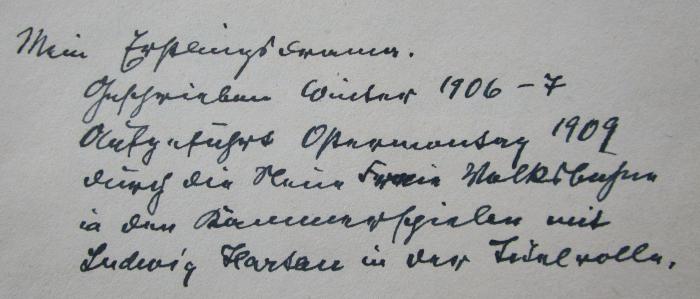 Mein Erstlingsdrama.
Geschrieben Winter 1906-7
Aufgeführt Ostermontag 1909
durch die Neue Freie Volksbühne
in den Kammerspielen mit
Ludwig Hartau in der Titelrolle.